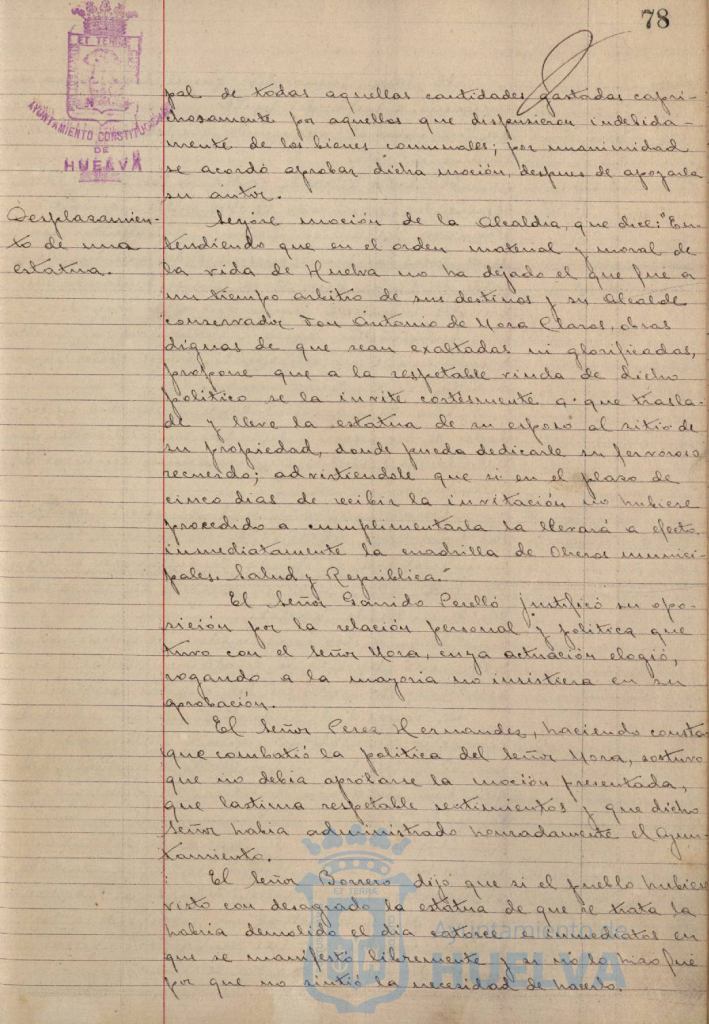 78
ET TERRE
AYUNTAMIENTO CONSTITUCIONAL
DE
HUELVA
pal de todas aquellas cantidades gastadas capri-
chosamente por aquellos que dispusieron indebida-
mente de los bienes comunales; por unanimidad
se acordó aprobar dicha moción, despues de apoyarla
su autor.
Desplazamien-
to de una
estatua.
Leyóse moción de la Alcaldia, que dice: "En-
tendiendo que en el orden material y moral de
la vida de Huelva no ha dejado el que fué a
un tiempo arbitro de sus destinos y su Alcalde
conservador Don Antonio de Mora Claros, obras
dignas de que sean exaltadas ni glorificadas,
propone que a la respetable viuda de dicho
politico se la invite cortésmente a que trasla-
de y lleve la estatua de su esposo al sitio de
su propiedad, donde pueda dedicarle su fervoroso
recuerdo; advirtiendole que si en el plazo de
cinco dias de recibir la invitación no hubiese
procedido a cumplimentarla la llevará a efecto
inmediatamente la cuadrilla de Obreros munici-
pales. Salud y República."
El Señor Garrido Perelló justificó su opo-
sición por la relación personal y politica que
tuvo con el Señor Mora, cuya actuación elogió,
rogando a la mayoria no insistiera en su
aprobación.
El Señor Perez Hernandez, haciendo constar
que combatió la politica del Señor Mora, sostuvo
que no debia aprobarse la moción presentada,
que lastima respetable sentimientos y que dicho
Señor habia administrado honradamente el Ayun-
tamiento.
El Señor Borrero dijó que si el pueblo hubiera
visto con desagrado la estatua de que se trata la
habria demolido el dia catorce e inmediatos en
que se manifestó libremente y si no lo hizo fué
por que no sintió la necesidad de hacerlo.
ET TERRA
Ayuntamiento de
HUELVA